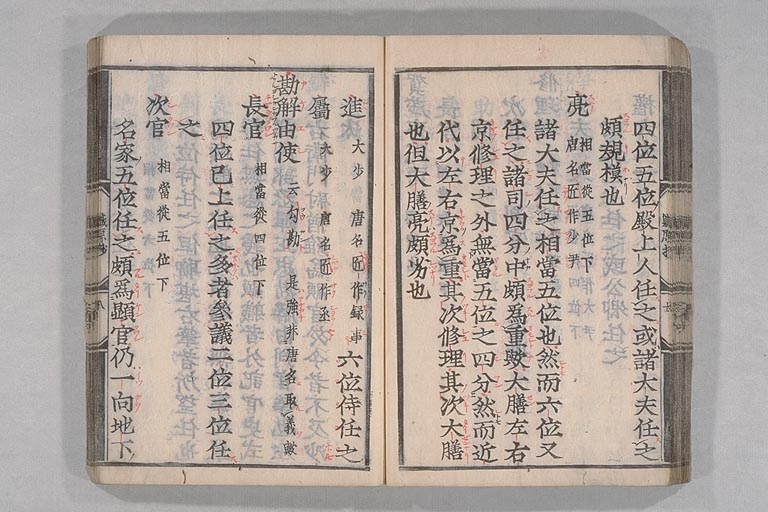 四位五位殿上人任之或諸大夫任之
頗規模也
亮 相當從五位下 唐名匠作少尹
諸大夫任之相當五位也然而六位又
任之諸司四分中頗爲重歟大膳左右
京修理之外無當五位之四分然而近
代以左右京爲重其次修理其次大膳
也但大膳亮頗劣也
進 大少 唐名匠作録事 六位侍任之
屬 大少 唐名匠作丞
勘解由使 云勾勘 是強非唐名取義歟
長官 相當從四位下
四位已上任之多者參議二位三位任
之
次官 相當從五位下
名家五位任之頗爲顯官仍一向地下